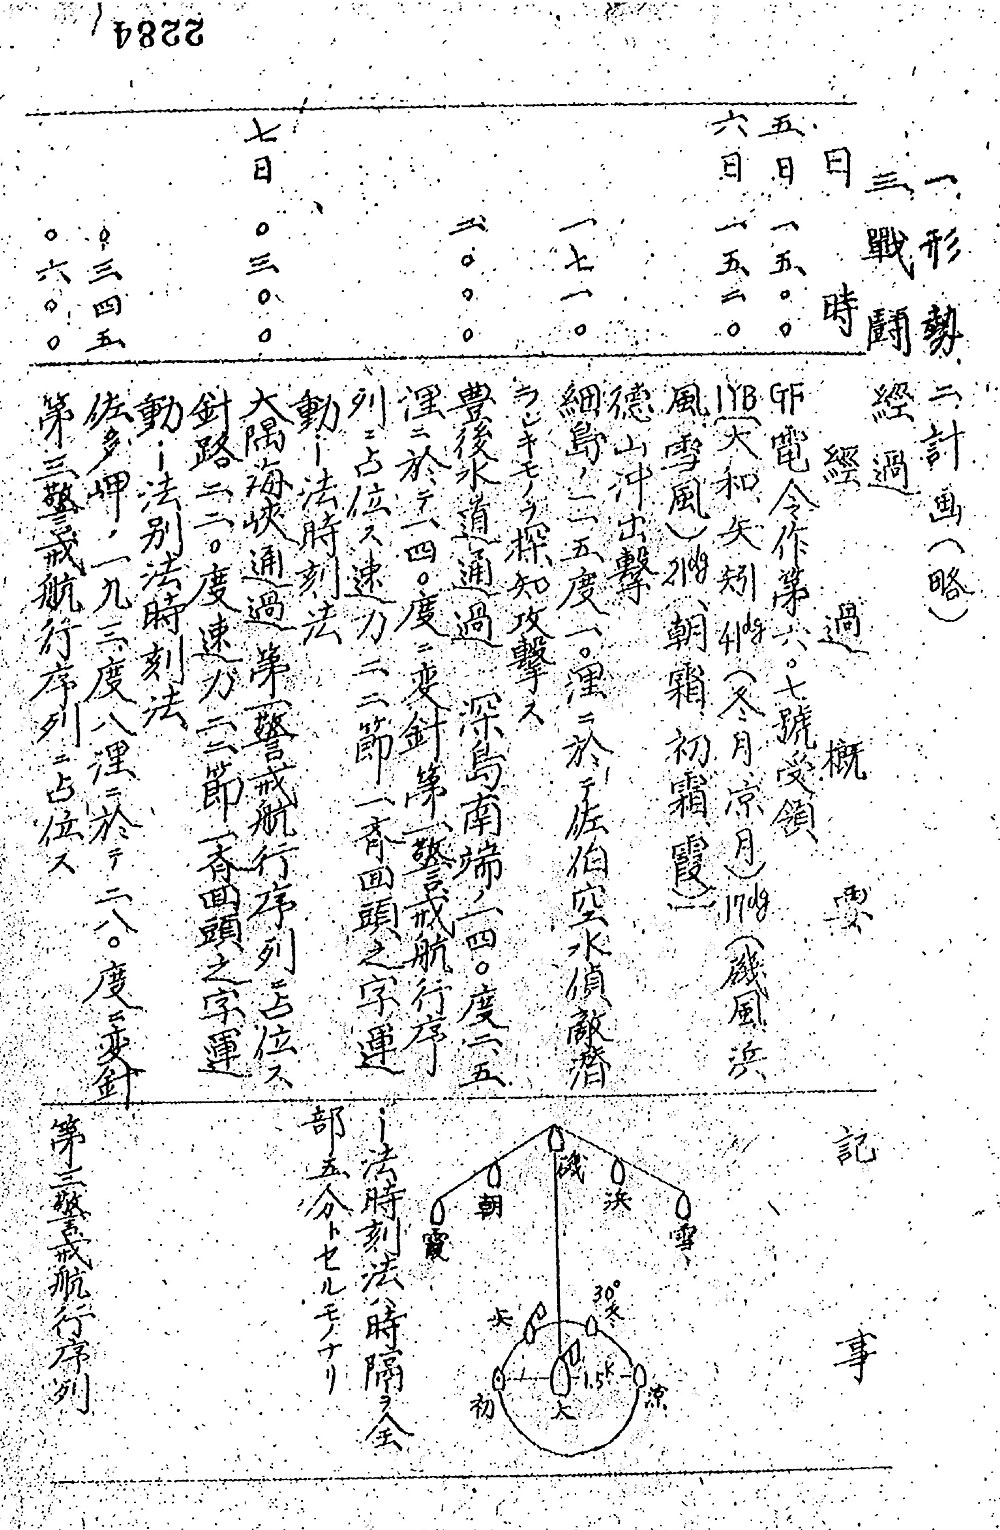 2284
一、形勢 二、計画(略)
三、戰鬪經過
日 時 經過概要 記事
五日 一五〇〇 GF電令作第六〇七號受領
六日 一五二〇 1YB(大和、矢矧 41dg(冬月、凉月)17dg(磯風、浜
風、雪風)21dg、朝霜、初霜、霞))
德山沖出擊
一七一〇 細島ノ一一五度一〇浬ニ於テ佐伯空水偵敵潛
ラシキモノヲ探知攻擊ス
二〇〇〇 豊後水道通過 深島南端ノ一四〇度二、五
浬ニ於テ一四〇度ニ変針第一警戒航行序
列ニ占位ス速力二二節一斉回頭之字運
動ーi法時刻法
七日 〇三〇〇 大隅海峽通過 第一警戒航行序列ニ占位ス
針路二二〇度速力二二節一斉回頭之字運
動ーi法別法時刻法
〇三四五 佐多岬ノ一九三度八浬ニ於テ二八〇度ニ変針
〇六〇〇 第三警戒航行序列ニ占位ス
磯
浜
雪
朝
霞
30°
冬
矢
1.5K
凉
初
大
i法時刻法ハ時隔ヲ全
部五分トセルモノナリ
第三警戒航行序列